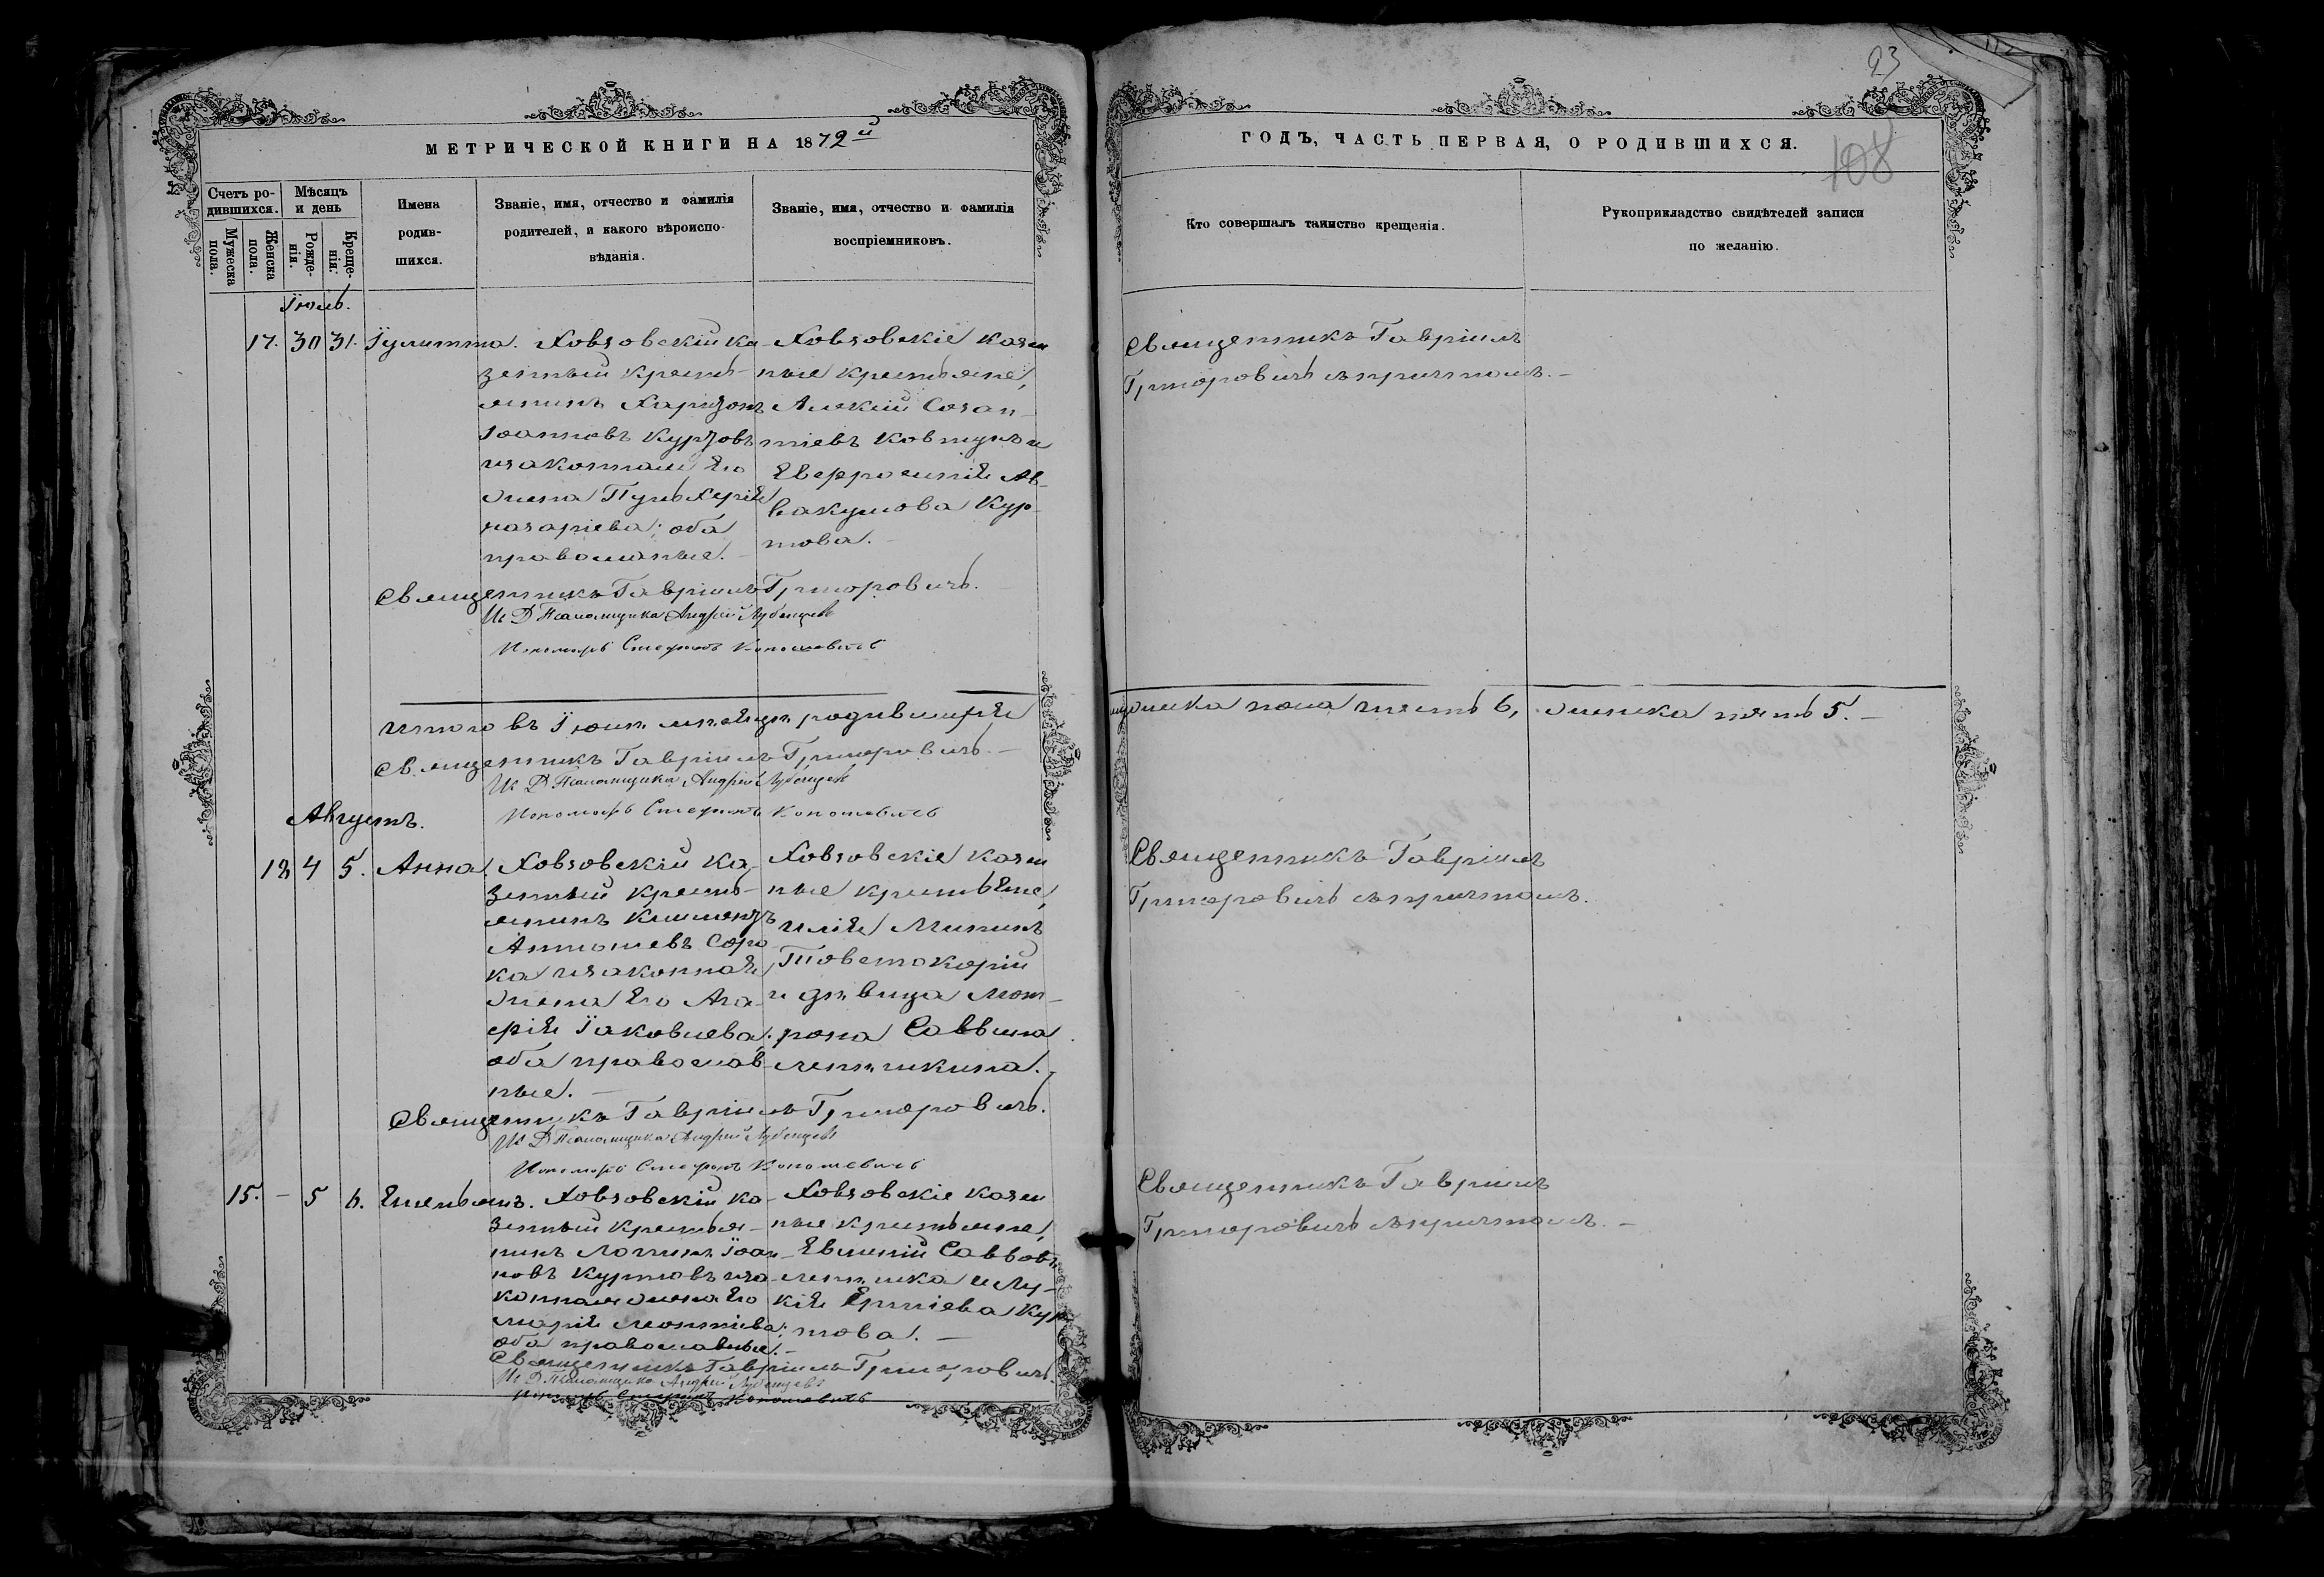 23
108
МЕТРИЧЕСКОЙ КНИГИ НА 1872й
ГОДЪ, ЧАСТЬ ПЕРВАЯ, О РОДИВШИХСЯ.
Счетъ ро-
дившихся.
Мужеска
пола.
Женска
пола.
Мѣсяцъ
и день
Рожде-
нія.
Креще-
нія.
Имена
родив-
шихся.
Званіе, имя, отчество и фамилія
родителей, и какого вѣроиспо-
вѣданія.
Званіе, имя, отчество и фамилія
воспріемниковъ.
Кто совершалъ таинство крещенія.
Рукоприкладство свидѣтелей записи
по желанію.
Іюль.
17. 30 31. Іулитта.
Ховзовскій ка-
зенный кресть-
янинъ Харитонъ
Іоанновъ Куртовъ
и законная его
жена Пульхерія
Назаріева; оба
православные.
Ховзовскіе казен
ные крестьяне,
Алексій Созан-
тіевъ Ковтунъ и
Евфросинія Ав-
вакумова Кур-
това.
Священникъ Гавріилъ
Григоровичъ съ причтомъ.
Священникъ Гавріилъ Григоровичъ.
И Д Псаломщика Андрей
Пономарь Стефанъ Кономевичъ
Итого въ Іюлѣ мѣсяцѣ родившихся
мужеска пола шесть 6, женска пять 5.
Священникъ Гавріилъ Григоровичъ.
И Д Псаломщика Андрей
Пономарь Стефанъ Кономевичъ
Августъ.
18 4 5. Анна.
Ховзовскій ка-
зенный кресть-
янинъ Климентъ
Антоніевъ Соро
ка и законная
жена его Ага-
фія Іаковлева;
оба православ-
ные.
Ховзовскіе казен
ные крестьяне,
Илія Мининъ
и дѣвица Мот-
рона Саввина
Священникъ Гавріилъ
Григоровичъ съ причтомъ.
Священникъ Гавріилъ Григоровичъ.
И Д Псаломщика Андрей
Пономарь Стефанъ Кономевичъ
15. - 5 6. Емельянъ.
Ховзовскій ка-
зенный крестья-
нинъ Логинъ Іоан-
новъ Куртовъ и за-
конная жена его
Марія Леонтіева;
оба православные.
Ховзовскіе казен
ные крестьяне,
Евменій Саввовъ
и Лу-
кія Ерміева Кур
това.
Священникъ Гавріилъ
Григоровичъ съ причтомъ.
Священникъ Гавріилъ Григоровичъ.
И Д Псаломщика Андрей
Пономарь Стефанъ Кономевичъ